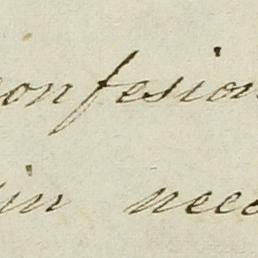 confesion
in nece